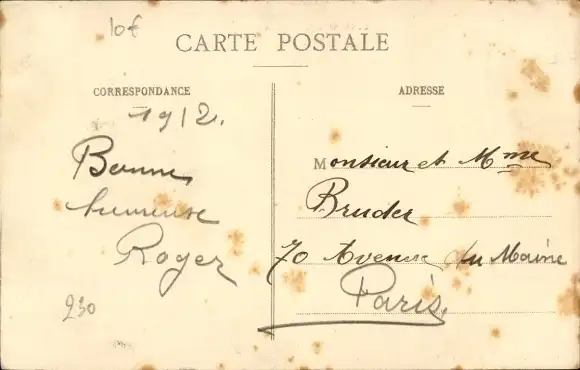 10€
CARTE POSTALE
CORRESPONDANCE
1912.
Bonne
heureuse
Roger
230
ADRESSE
Monsieur et Mme
Bruder
70 Avenue du Maine
Paris.